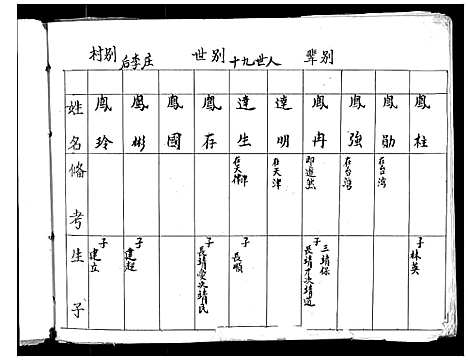 村别 后李庄 世别 十九世人 辈别
姓名 鳳玲 鳳彬 鳳國 鳳存 達生 達明 鳳冉 鳳強 鳳勋 鳳柱
俻考 在天津 在天津 即道然 在台湾 在台湾
生子 子建立 子建起 子長靖愛次靖民 子長順 子長靖才次靖道三靖保 子林英